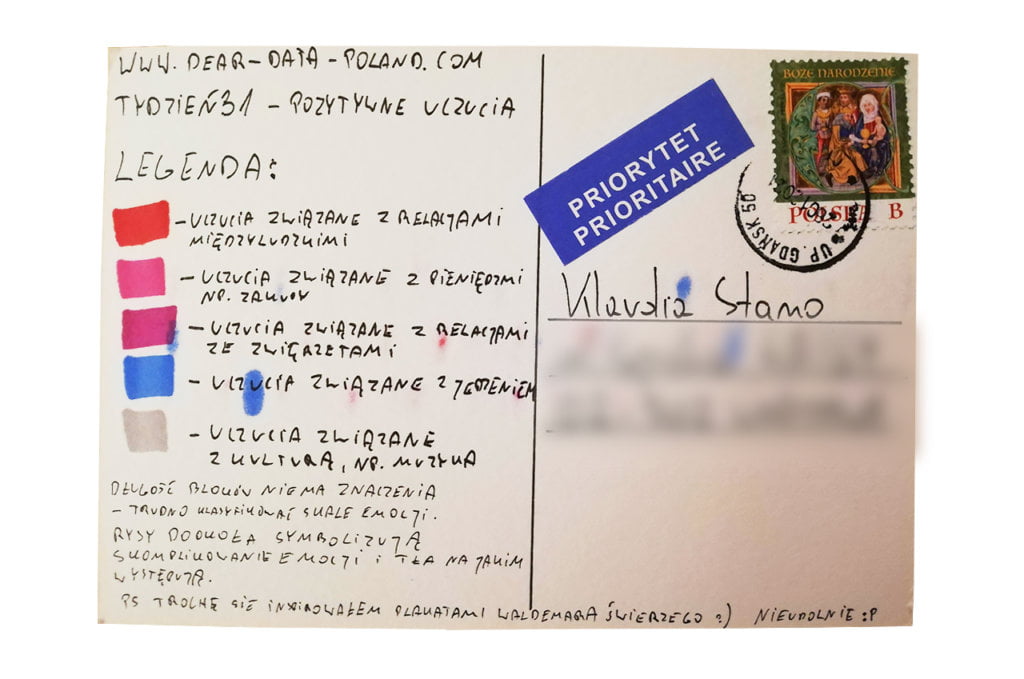 WWW.DEAR-DATA-POLAND.COM
TYDZIEŃ 31 - POZYTYWNE UCZUCIA
LEGENDA:
- UCZUCIA ZWIĄZANE Z RELACJAMI
MIĘDZYLUDZKIMI
- UCZUCIA ZWIĄZANE Z PIENIĘDZMI
NP. ZAKUPY
- UCZUCIA ZWIĄZANE Z RELACJAMI
ZE ZWIĘRZETAMI
- UCZUCIA ZWIĄZANE Z JEDZENIEM
- UCZUCIA ZWIĄZANE
Z KULTURĄ, NP. MUZYKA
DŁUGOŚĆ BLOKÓW NIE MA ZNACZENIA
- TRUDNO KLASYFIKOWAĆ SKALE EMOCJI.
RYSY DOOKOŁA SYMBOLIZUJĄ
SKOMPLIKOWANIE EMOCJI I TŁA NA JAKIM
WYSTĘPUJĄ.
PS TROCHĘ SIĘ INSPIROWAŁEM PLAKATAMI WALDEMARA ŚWIERZEGO :) NIEUDOLNIE :P
PRIORYTET
PRIORITAIRE
BOŻE NARODZENIE
POLSKA B
UP. GDAŃSK 50
Klaudia Stamo